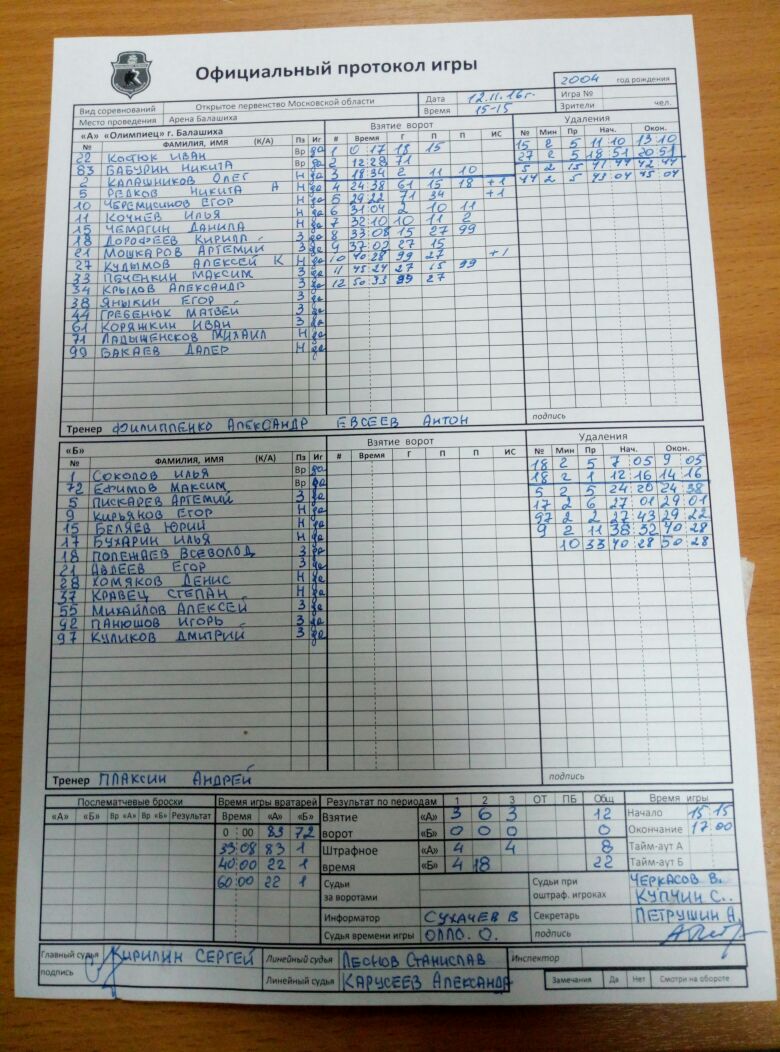 Официальный протокол игры
2004 год рождения
Вид соревнований Открытое первенство Московской области Дата 12.11.16г. Игра №
Место проведения Арена Балашиха Время 15-15 Зрители чел.
«А» «Олимпиец» г. Балашиха Взятие ворот Удаления
№ ФАМИЛИЯ, ИМЯ (К/А) Пз Иг # Время Г П П ИС № Мин Пр Нач. Окон.
22 Костюк Иван Вр да 1 0 17 18 15 15 2 5 11 10 13 10
83 Бабурин Никита Вр да 2 12 28 71 27 2 5 18 51 20 51
2 Калашников Олег Н да 3 18 34 2 11 10 5 2 15 41 44 42 44
5 Редков Никита А Н да 4 24 38 61 15 18 +1 44 2 5 43 04 45 04
10 Черемисинов Егор Н да 5 29 22 71 34 +1
11 Кочнев Илья Н да 6 31 04 2 10 11
15 Чемагин Данила Н да 7 32 10 10 11 2
18 Дорофеев Кирилл З да 8 33 08 15 27 99
21 Мошкаров Артемий З да 9 37 02 27 15
27 Кудымов Алексей К Н да 10 40 28 99 27 +1
33 Печенкин Максим З да 11 45 24 27 15 99
34 Крылов Александр З да 12 50 33 99 27
38 Яныкин Егор З да
44 Гребенюк Матвей З да
61 Коряжкин Иван З да
71 Ладыженсков Михаил Н да
99 Бакаев Далер Н да
Тренер Филиппенко Александр Евсеев Антон подпись
«Б» Взятие ворот Удаления
№ ФАМИЛИЯ, ИМЯ (К/А) Пз Иг # Время Г П П ИС № Мин Пр Нач. Окон.
1 Соколов Илья Вр да 18 2 5 7 05 9 05
72 Ефимов Максим Вр да 18 2 1 12 16 14 16
5 Пискарев Артемий З да 5 2 5 24 20 24 38
9 Кирьянов Егор Н да 17 2 6 27 01 29 01
15 Беляев Юрий Н да 97 2 2 27 43 29 22
17 Бухарин Илья Н да 9 2 11 38 32 40 28
18 Полежаев Всеволод З да 10 33 40 28 50 28
21 Авдеев Егор З да
28 Хомяков Денис Н да
37 Кравец Степан Н да
55 Михайлов Алексей З да
92 Панюшов Игорь З да
97 Куликов Дмитрий З да
Тренер Плаксин Андрей подпись
Послематчевые броски Время игры вратарей Результат по периодам 1 2 3 ОТ ПБ Общ Время игры
«А» «Б» Вр «А» Вр «Б» Результат Время «А» «Б» Взятие ворот «А» 3 6 3 12 Начало 15 15
0 00 83 72 «Б» 0 0 0 0 Окончание 17 00
33:08 83 1 Штрафное время «А» 4 4 8 Тайм-аут А
40:00 22 1 «Б» 4 18 22 Тайм-аут Б
60:00 22 1 Судьи за воротами Судьи при оштраф. игроках Черкасов В. Купчин С.
Информатор Сухачев В Секретарь Петрушин А.
Судья времени игры подпись
Главный судья Кирилин Сергей Линейный судья Леонов Станислав Инспектор
подпись Линейный судья Карусеев Александр Замечания Да Нет Смотри на обороте